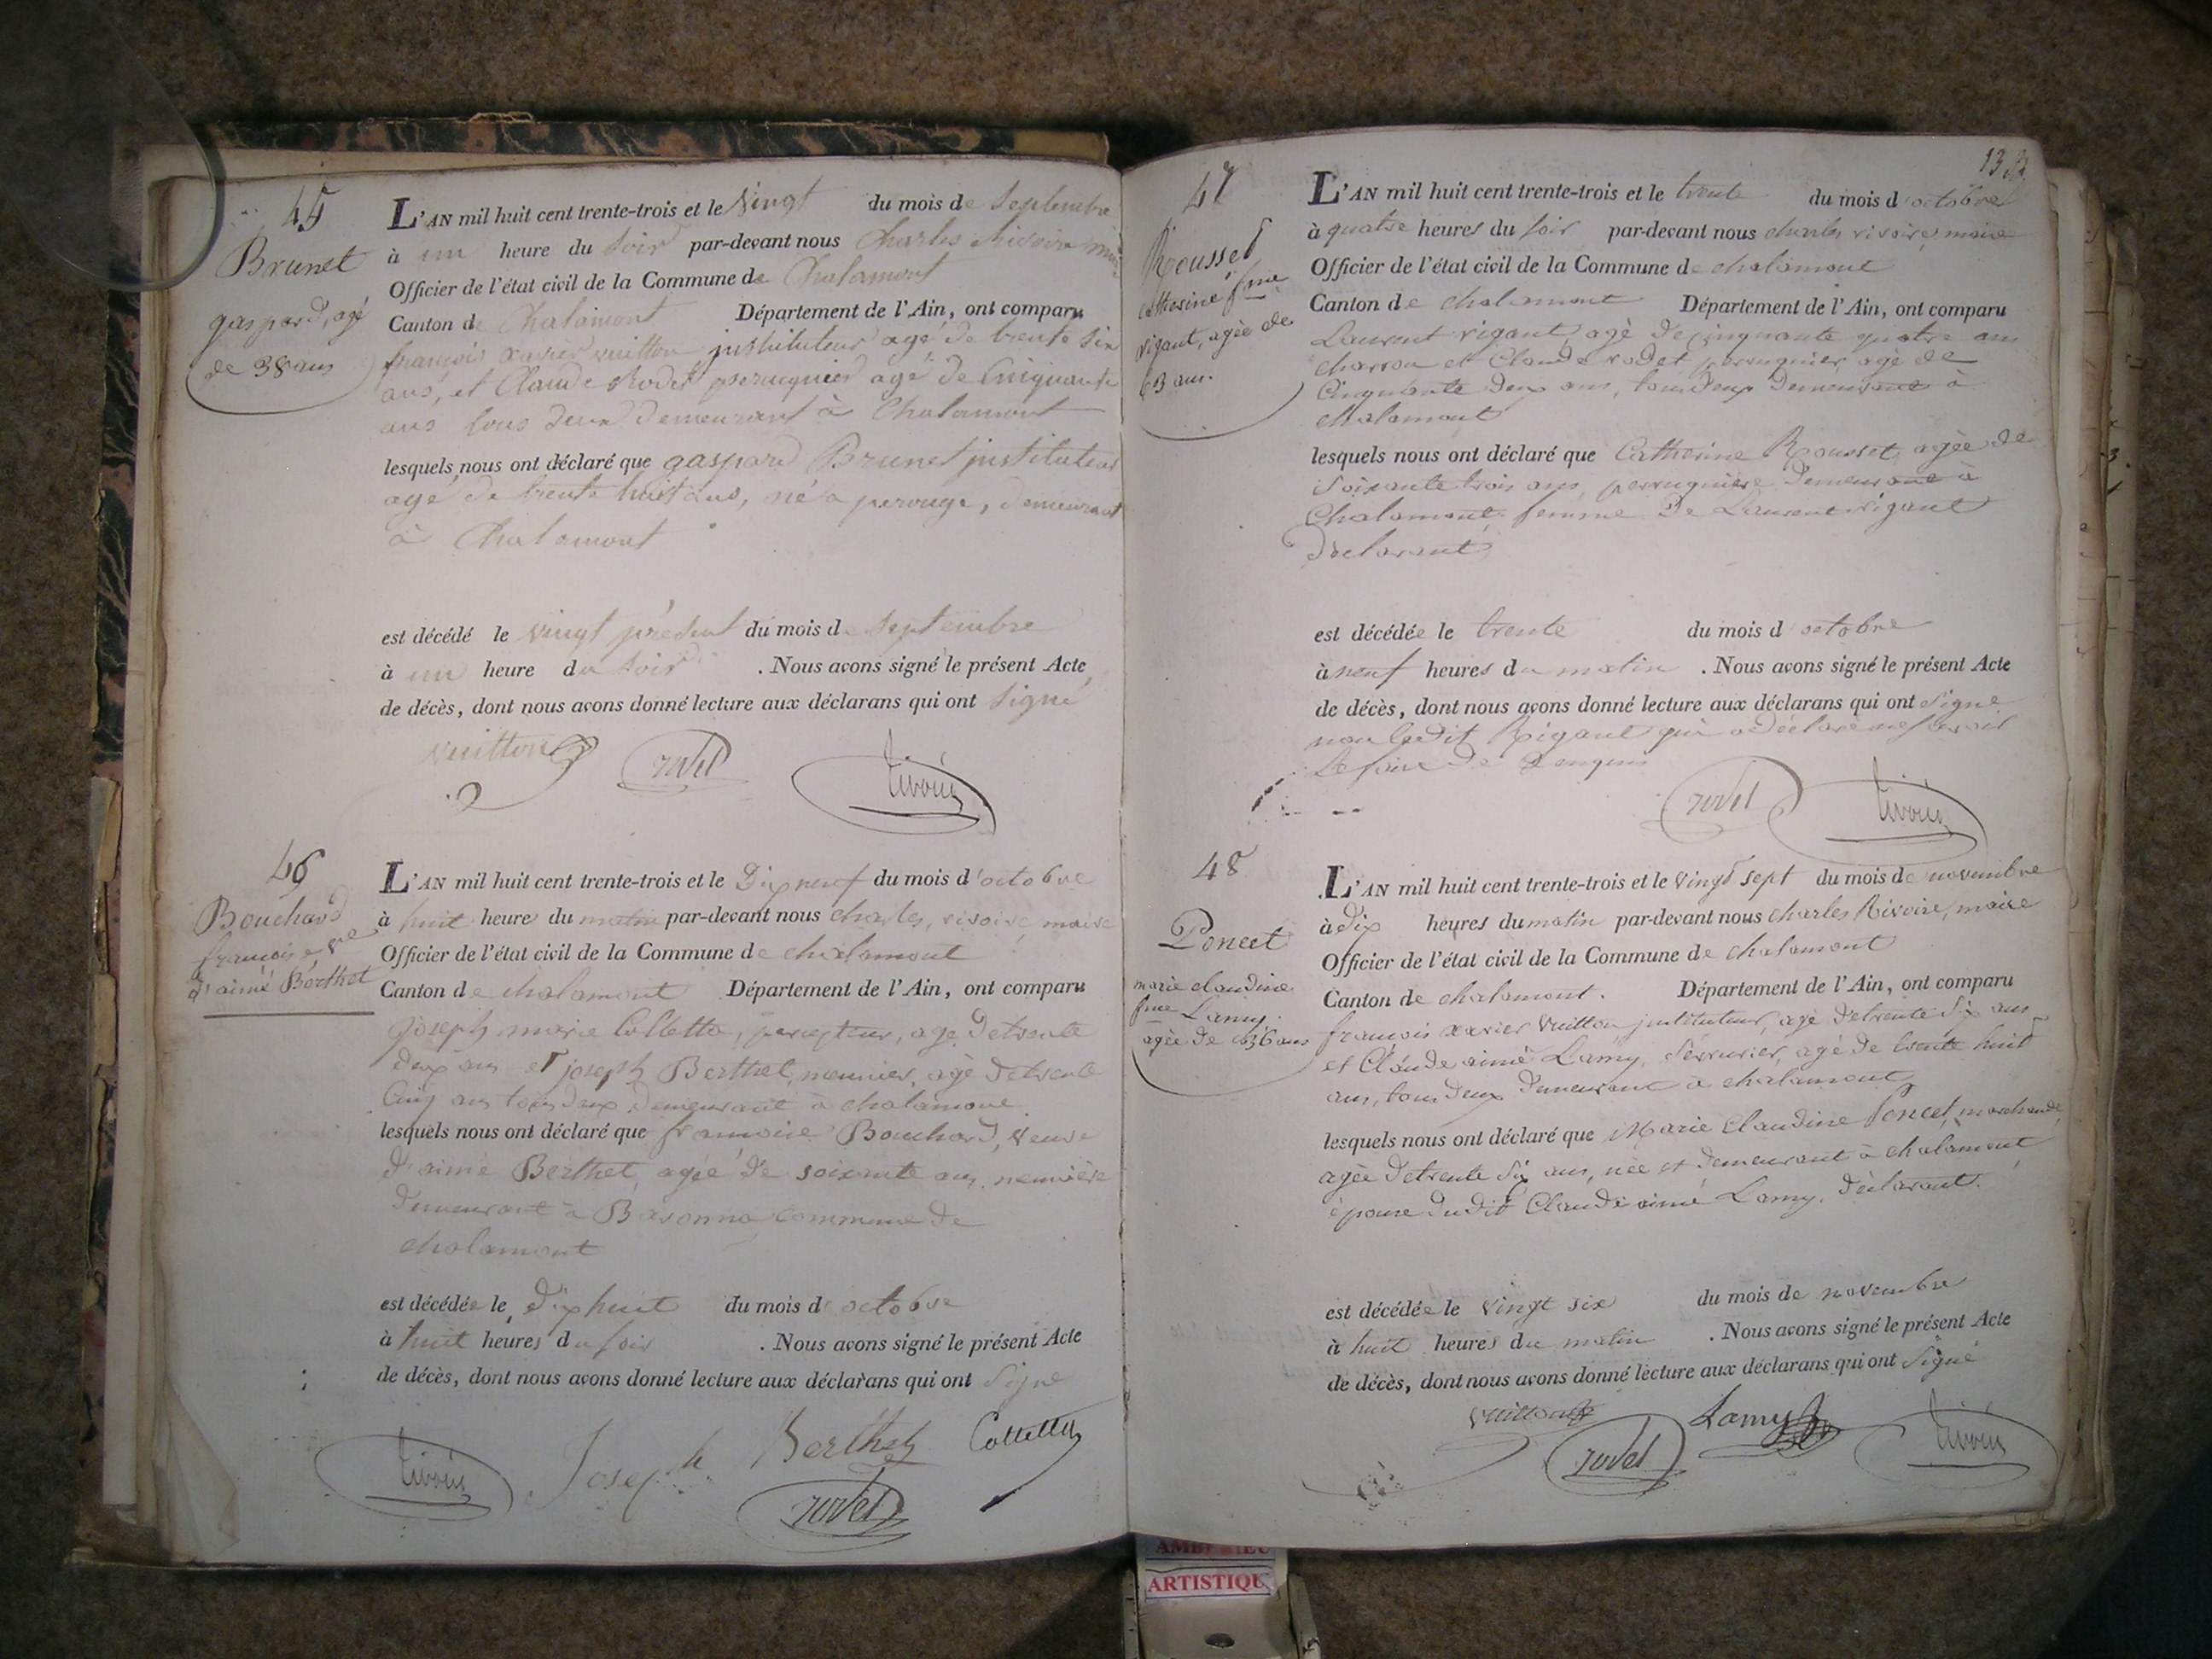 45
Brunet
gaspard, agé
de 38 ans
L'AN mil huit cent trente-trois et le vingt du mois de Septembre
à un heure du soir par-devant nous Charles Rivoire maire
Officier de l'état civil de la Commune de Chalamont
Canton de Chalamont Département de l'Ain, ont comparu
françois xavier vuitton instituteur agé de trente six
ans, et Claude Rodet perruquier agé de Cinquante
ans tous deux demeurant à Chalamont
lesquels nous ont déclaré que gaspard Brunet instituteur
agé de trente huit ans, né a perouge, demeurant
à Chalamont
est décédé le vingt présent du mois de Septembre
à un heure du soir . Nous avons signé le présent Acte
de décès, dont nous avons donné lecture aux déclarans qui ont signé
vuitton rodet rivoire
46
Bouchard
françoise ve
d'aimé Berthet
L'AN mil huit cent trente-trois et le Dix neuf du mois d'octobre
à huit heure du matin par-devant nous charles, rivoire maire
Officier de l'état civil de la Commune de chalamont
Canton de chalamont Département de l'Ain, ont comparu
joseph marie Colletta, percepteur, agé de trente
deux ans et joseph Berthet, meunier, agé de trente
Cinq ans tous deux demeurant à chalamont
lesquels nous ont déclaré que francoise Bouchard, veuve
d'aimé Berthet, agée de soixante ans, meunière
demeurant à Baronna commune de
chalamont
est décédée le dix huit du mois d'octobre
à huit heures du soir . Nous avons signé le présent Acte
de décès, dont nous avons donné lecture aux déclarans qui ont signé
rivoire Joseph Berthet Colletta
rodet
13
47
Rousset
catherine fme
rigaut, agée de
63 ans.
L'AN mil huit cent trente-trois et le trente du mois d'octobre
à quatre heures du soir par-devant nous charles rivoire, maire
Officier de l'état civil de la Commune de chalamont
Canton de chalamont Département de l'Ain, ont comparu
Laurent rigaut, agé de cinquante quatre ans
charron et Claude rodet perruquier, agé de
Cinquante deux ans, tous deux demeurant à
chalamont
lesquels nous ont déclaré que Catherine Rousset, agée de
soixante trois ans, perruquière demeurant à
Chalamont femme de Laurent rigaut
déclarant
est décédée le trente du mois d'octobre
à neuf heures du matin . Nous avons signé le présent Acte
de décès, dont nous avons donné lecture aux déclarans qui ont signé
non ledit Rigaut qui a déclaré ne savoir
le faire de requis
rodet rivoire
48
Poncet
marie claudine
fme Lamy.
agée de 36 ans
L'AN mil huit cent trente-trois et le vingt sept du mois de novembre
à dix heures du matin par-devant nous charles Rivoire, maire
Officier de l'état civil de la Commune de chalamont
Canton de chalamont. Département de l'Ain, ont comparu
françois xavier Vuitton instituteur, agé de trente six ans
et Claude aimé Lamy, serrurier, agé de trente huit
ans, tous deux demeurant à chalamont
lesquels nous ont déclaré que Marie Claudine Poncet, marchande
agée de trente six ans, née et demeurant à chalamont
épouse dudit Claude aimé Lamy, déclarant.
est décédée le vingt six du mois de novembre
à huit heures du matin . Nous avons signé le présent Acte
de décès, dont nous avons donné lecture aux déclarans qui ont signé
vuitton rodet Lamy rivoire
ARTISTIQU